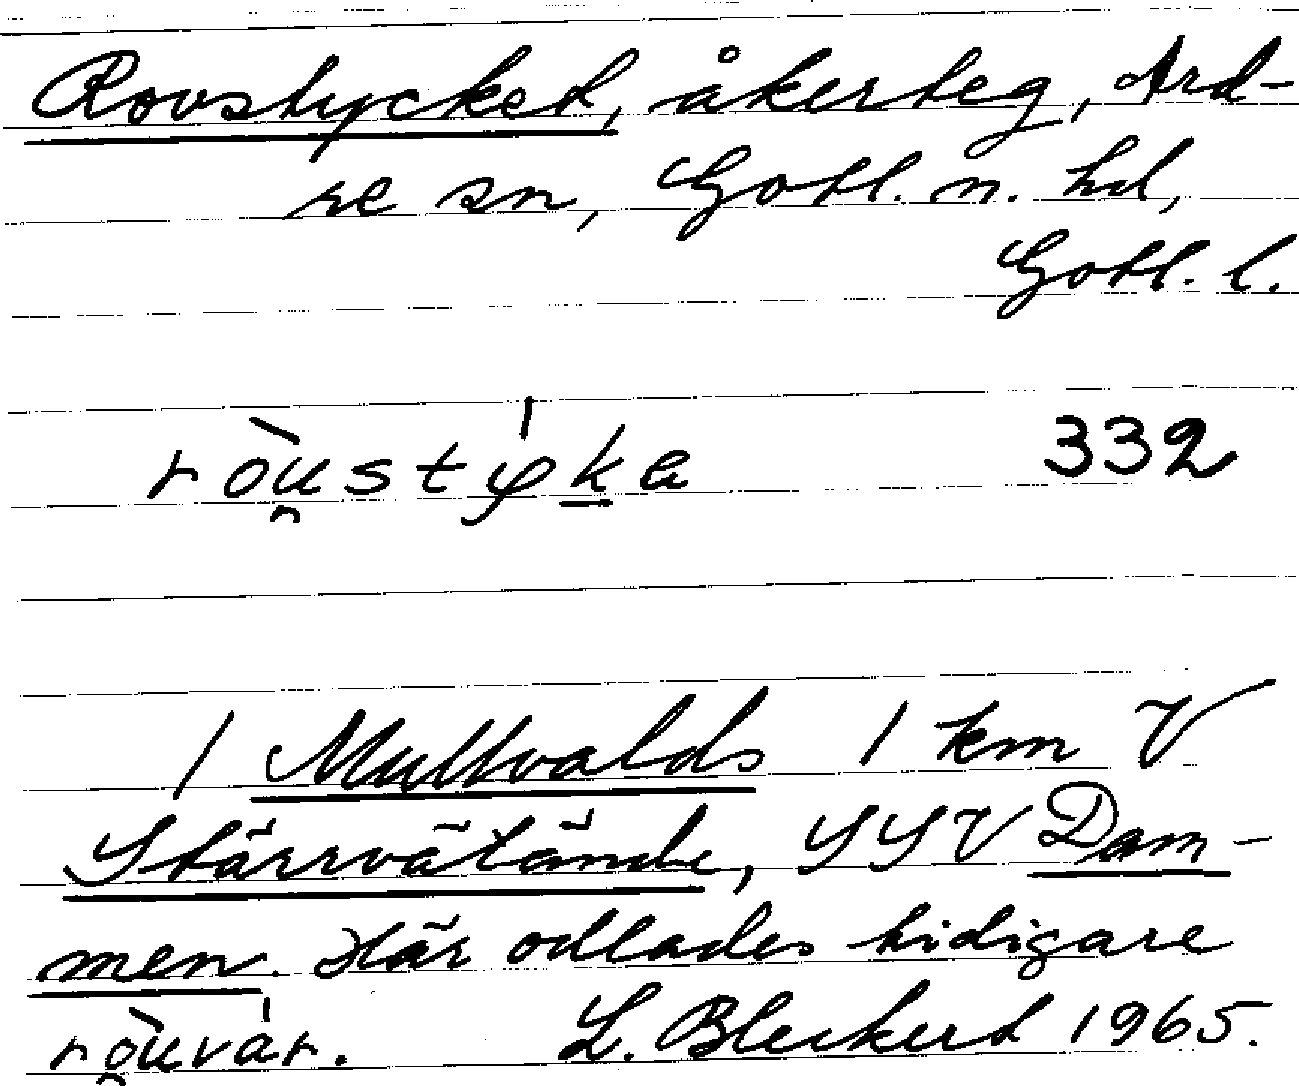 Rovstycket, åkerteg, Ard-
re sn, Gotl. n. hd,
Gotl. l.
ròu̯stýka 332
/ Mullvalds 1 km V
Stärrvätände, SSV Dam-
men. Här odlades tidigare
ròu̯vàr. L. Bleckert 1965.